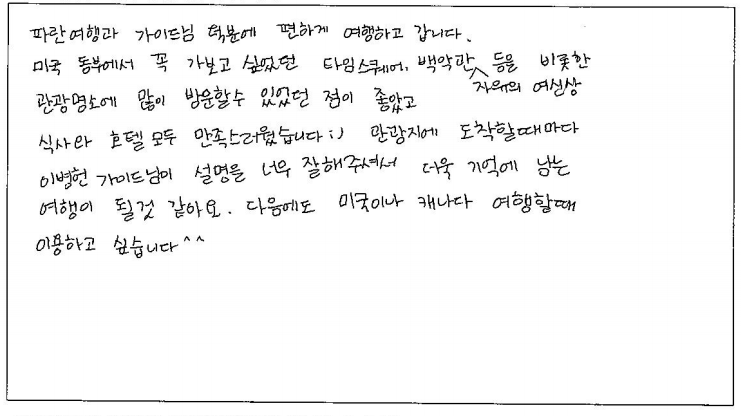 파란여행과 가이드님 덕분에 편하게 여행하고 갑니다.
미국 동부에서 꼭 가보고 싶었던 타임스퀘어, 백악관 등을 비롯한
자유의 여신상
관광명소에 많이 방문할수 있었던 점이 좋았고
식사와 호텔 모두 만족스러웠습니다 :) 관광지에 도착할때마다
이병헌 가이드님이 설명을 너무 잘해주셔서 더욱 기억에 남는
여행이 될것 같아요. 다음에도 미국이나 캐나다 여행할때
이용하고 싶습니다^^